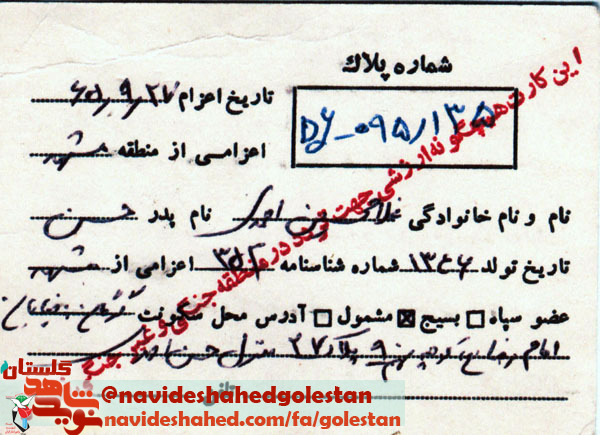 شماره پلاک
DY-095/135
تاریخ اعزام ۶۵/۹/۲۷
اعزامی از منطقه مشهد
نام و نام خانوادگی غلامحسین احمدی نام پدر حسن
تاریخ تولد ۱۳۴۶ شماره شناسنامه ۳۵۲ اعزامی از مشهد
عضو سپاه بسیج مشمول آدرس محل سکونت گرگان خیابان
امام رضا پلاک ۲۷ منزل حسن احمدی
این کارت هیچگونه ارزشی جهت تردد در منطقه جنگی و غیر جنگی
گلستان
نوید شاهد
@navideshahedgolestan
navideshahed.com/fa/golestan